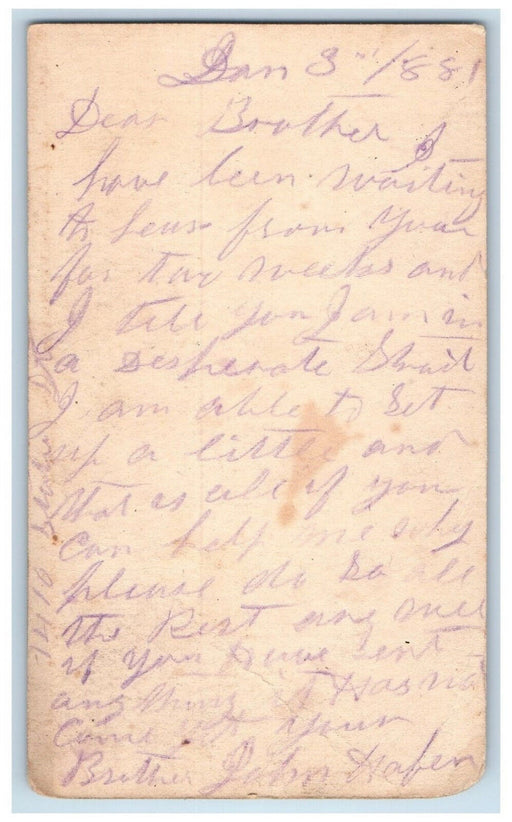 Jan 3rd 1881
Dear Brother I
have been waiting
to hear from you
for two weeks and
I tell you I am in
a Desperate Strait
I am able to Set
up a little and
that is all if you
can help me why
please do So all
the Rest are well
if you Have Sent
any thing it Has not
Come yet your
Brother John Hafen